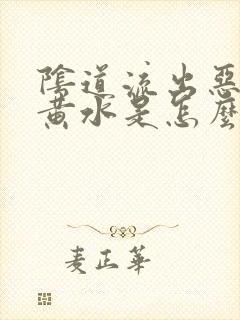 陰道流出惡
黃水是怎麼
麦正華